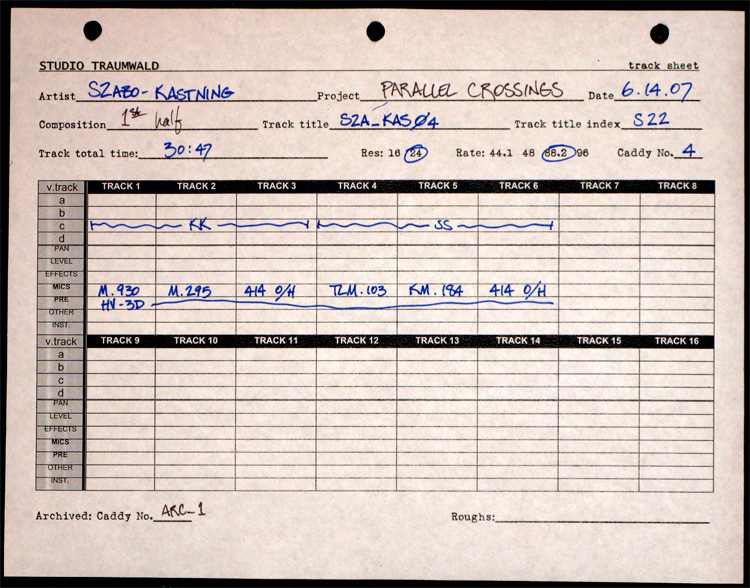 STUDIO TRAUMWALD track sheet
Artist SZABO-KASTNING Project PARALLEL CROSSINGS Date 6.14.07
Composition 1st half Track title SZA_KAS04 Track title index S22
Track total time: 30:47 Res: 16 24 Rate: 44.1 48 88.2 96 Caddy No. 4
v.track TRACK 1 TRACK 2 TRACK 3 TRACK 4 TRACK 5 TRACK 6 TRACK 7 TRACK 8
a
b
c KK SS
d
PAN
LEVEL
EFFECTS
MICS M.930 M.295 414 O/H TLM.103 KM.184 414 O/H
PRE HV-3D
OTHER
INST.
v.track TRACK 9 TRACK 10 TRACK 11 TRACK 12 TRACK 13 TRACK 14 TRACK 15 TRACK 16
a
b
c
d
PAN
LEVEL
EFFECTS
MICS
PRE
OTHER
INST.
Archived: Caddy No. ARC-1 Roughs: